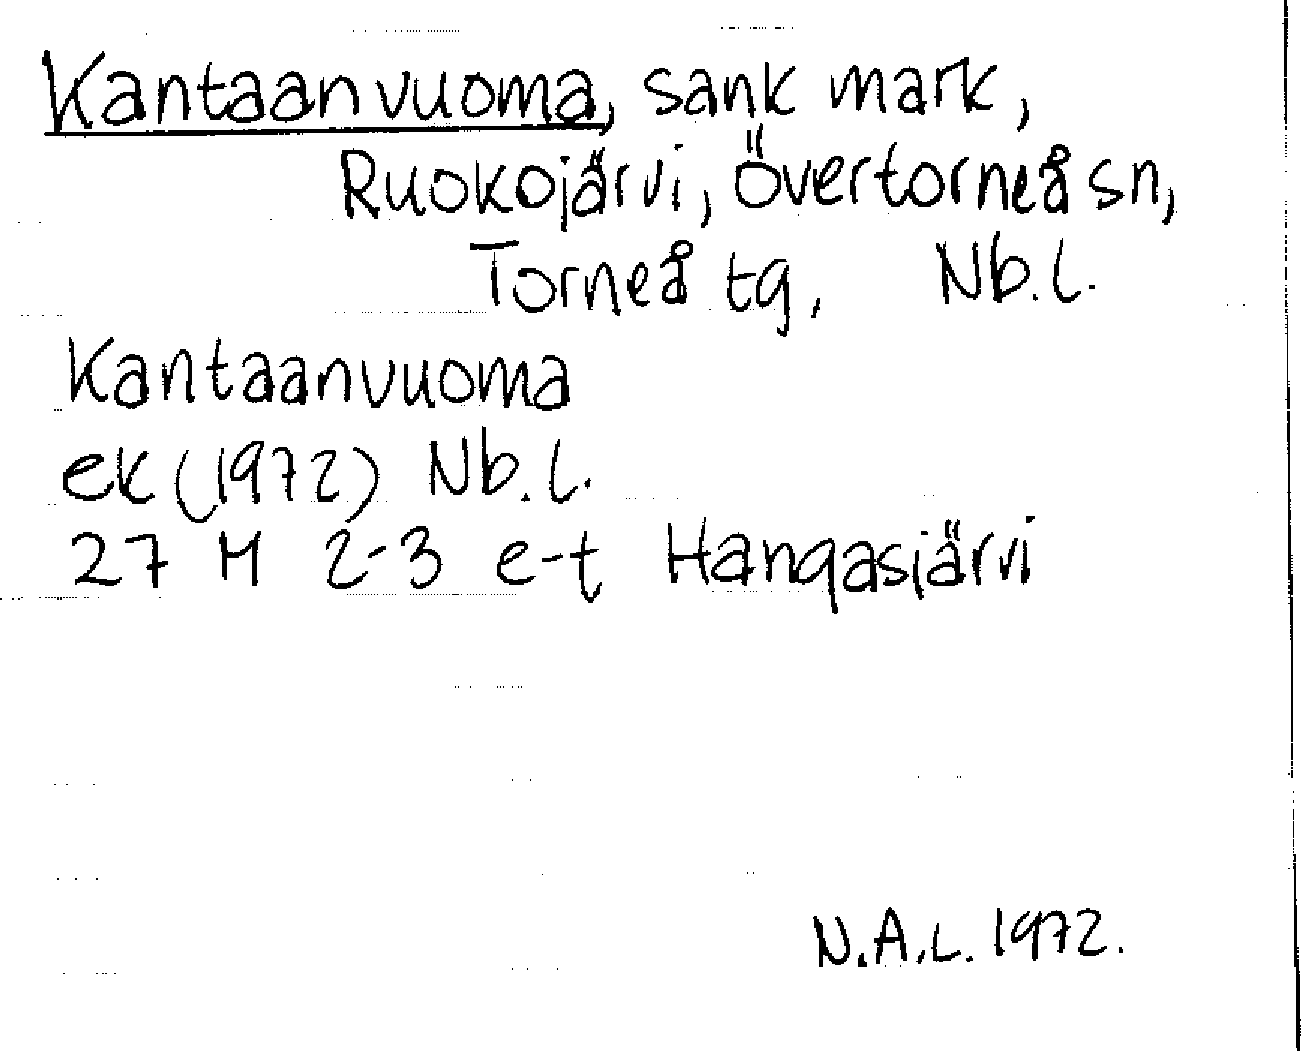 Kantaanvuoma, sank mark,
Ruokojärvi, Övertorneå sn,
Torneå tg, Nb.l.
Kantaanvuoma
ek (1972) Nb.l.
27 M 2-3 e-t Hangasjärvi
N.A.L. 1972.